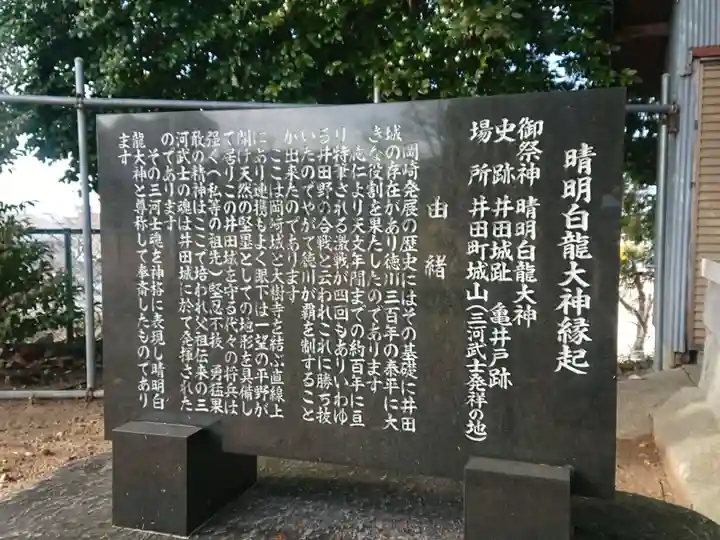 晴明白龍大神縁起
御祭神 晴明白龍大神
史跡 井田城趾 亀井戸跡
場所 井田町城山(三河武士発祥の地)
由緒
岡崎発展の歴史にはその基礎に井田
城の存在があり徳川三百年の泰平に大
きな役割を果たしたのであります
応仁より天文年間までの約百年に亘
り特筆される激戦が四回もありいわゆ
る井田野の合戦と云われこれに勝ち抜
いたのでやがて徳川が覇を制すること
が出来たのであります
ここは岡崎城と大樹寺を結ぶ直線上
にあり連携もよく眼下は一望の平野が
開け天然の堅塁としての地形を具備し
て居りこの井田城を守る代々の将兵は
強く(私等の祖先)堅忍不抜、勇猛果
敢の精神はここで培われ父祖伝来の三
河武士の魂は井田城に於て発揮された
のであります
その三河士魂を神格に表現し晴明白
龍大神と尊称して奉斎したものであり
ます